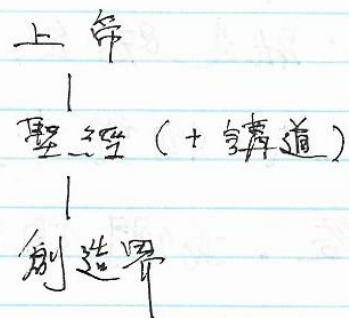 上帝
|
聖經 (+ 講道)
|
創造界